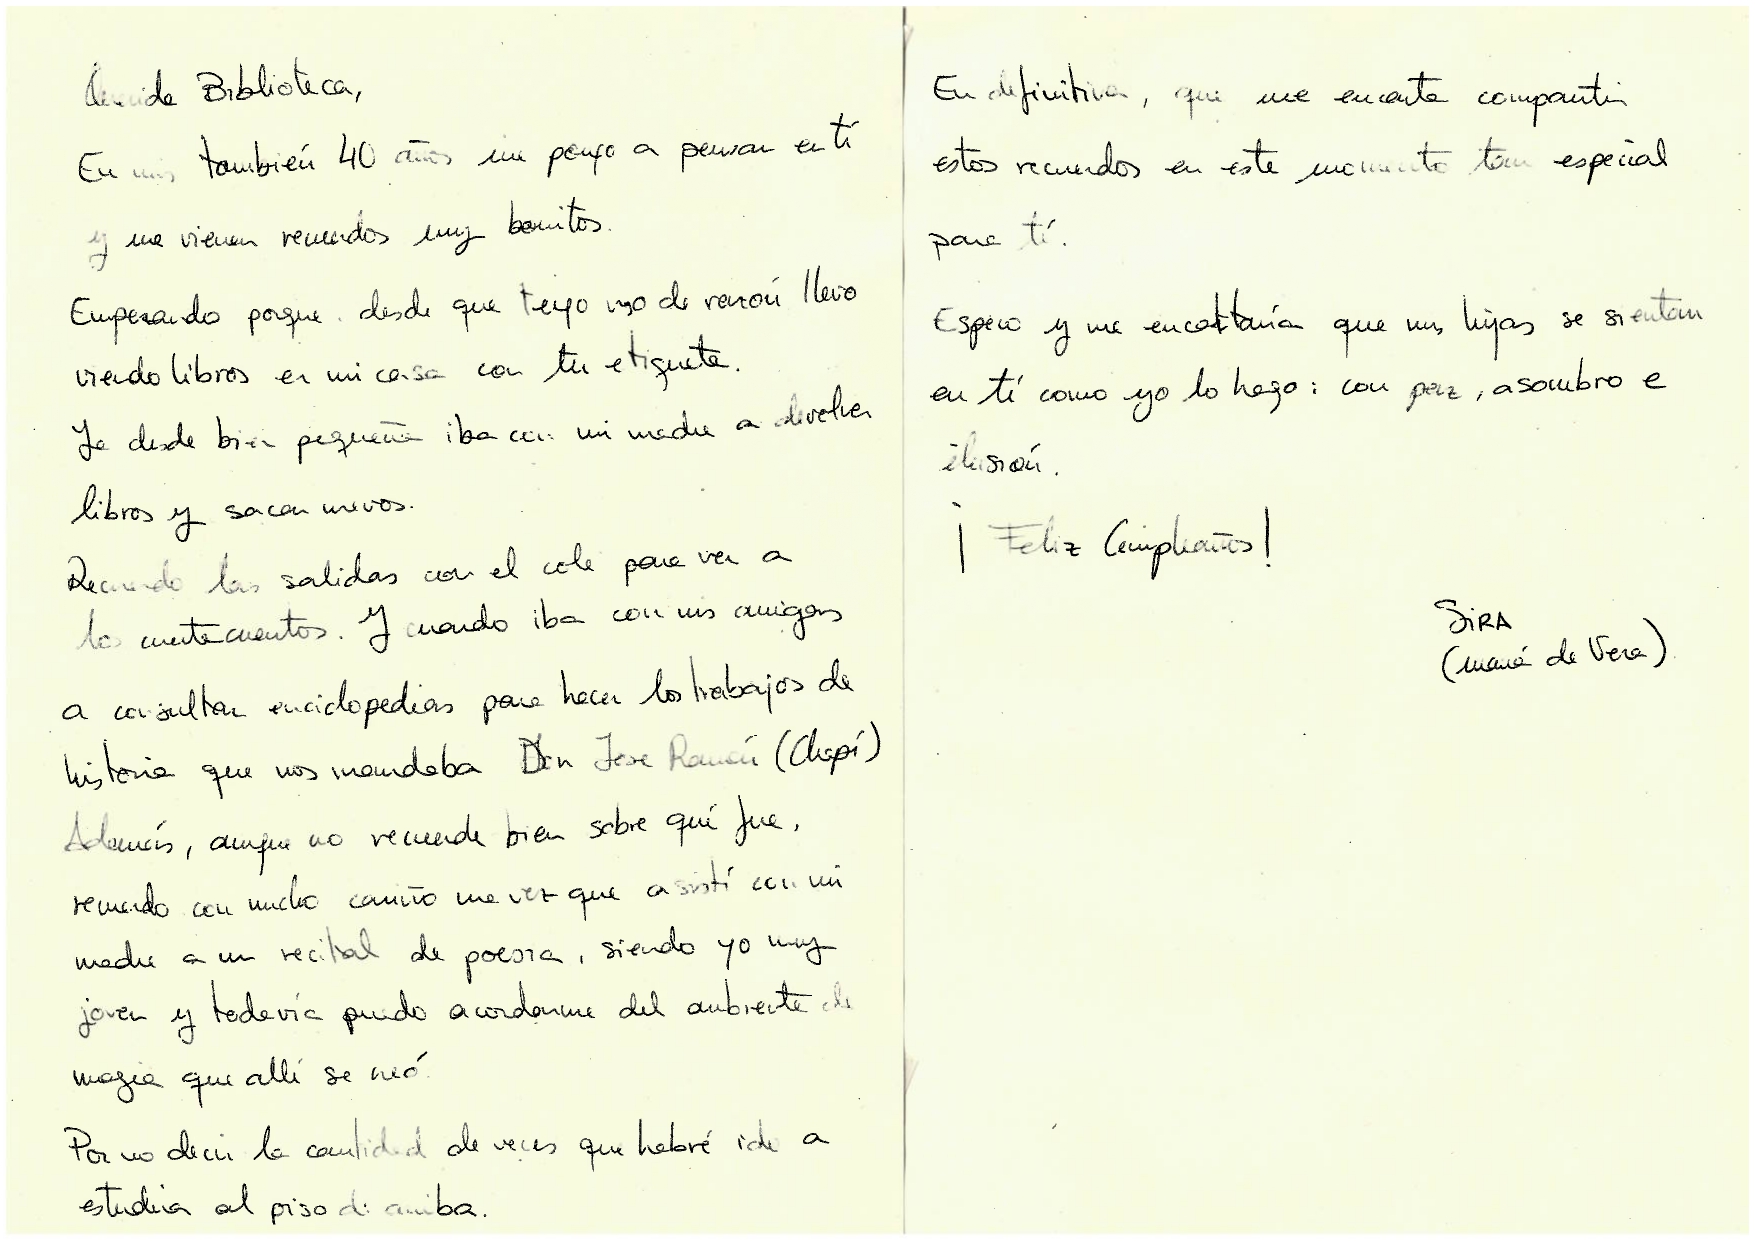 Querida Biblioteca,
En mis también 40 años me pongo a pensar en tí
y me vienen recuerdos muy bonitos.
Empezando porque desde que tengo uso de razón llevo
viendo libros en mi casa con tu etiqueta.
Ya desde bien pequeña iba con mi madre a devolver
libros y sacar nuevos.
Recuerdo las salidas con el cole para ver a
los cuentacuentos. Y cuando iba con mis amigas
a consultar enciclopedias para hacer los trabajos de
historia que nos mandaba Don Jose Ramón (Chapí)
Además, aunque no recuerde bien sobre qué fue,
recuerdo con mucho cariño una vez que asistí con mi
madre a un recital de poesía, siendo yo muy
joven y todavía puedo acordarme del ambiente de
magia que allí se creó.
Por no decir la cantidad de veces que habré ido a
estudiar al piso de arriba.
En definitiva, que me encanta compartir
estos recuerdos en este momento tan especial
para tí.
Espero y me encantaría que mis hijas se sientan
en tí como yo lo hago: con paz, asombro e
ilusión.
¡Feliz Cumpleaños!
SIRA
(mamá de Vera)